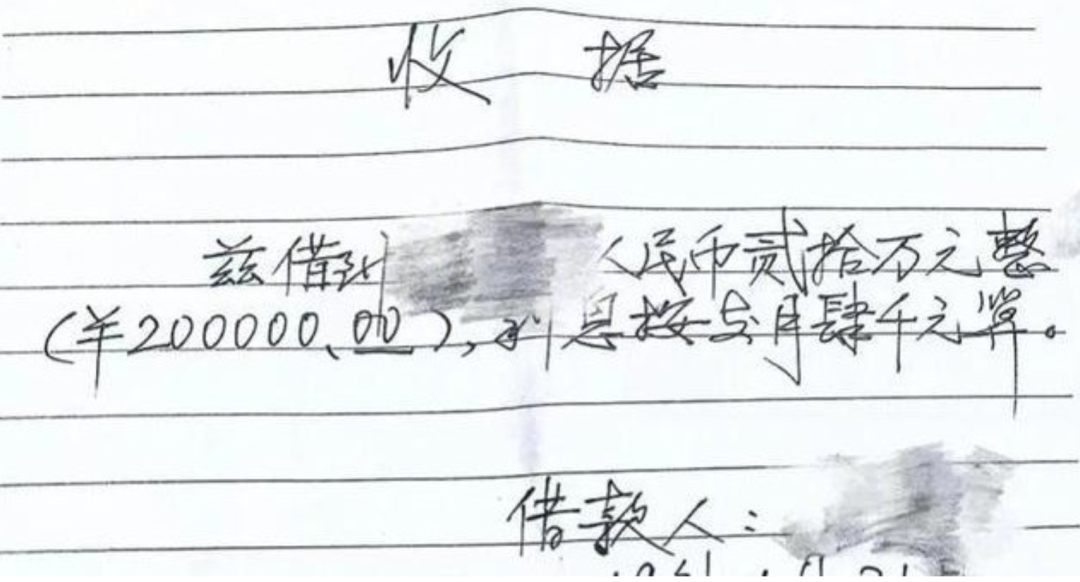 收 据
兹借到 人民币贰拾万元整
(¥200000.00),利息按每月肆千元算。
借款人: